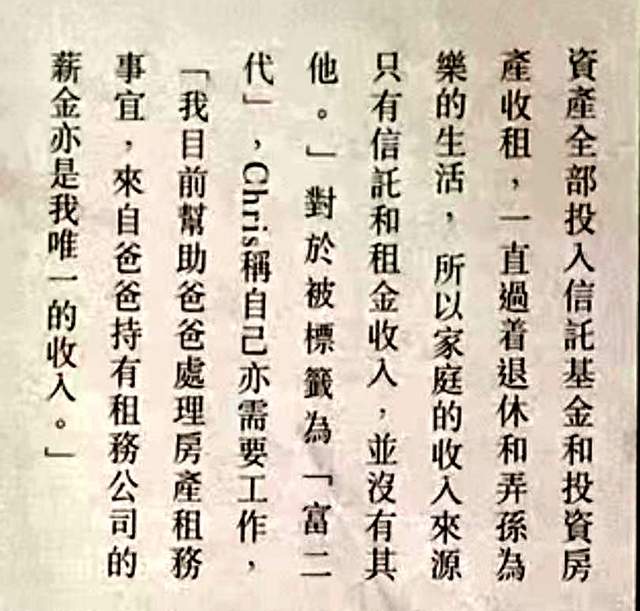 資產全部投入信託基金和投資房
產收租，一直過着退休和弄孫為
樂的生活，所以家庭的收入來源
只有信託和租金收入，並沒有其
他。」對於被標籤為「富二
代」，Chris稱自己亦需要工作，
「我目前幫助爸爸處理房產租務
事宜，來自爸爸持有租務公司的
薪金亦是我唯一的收入。」